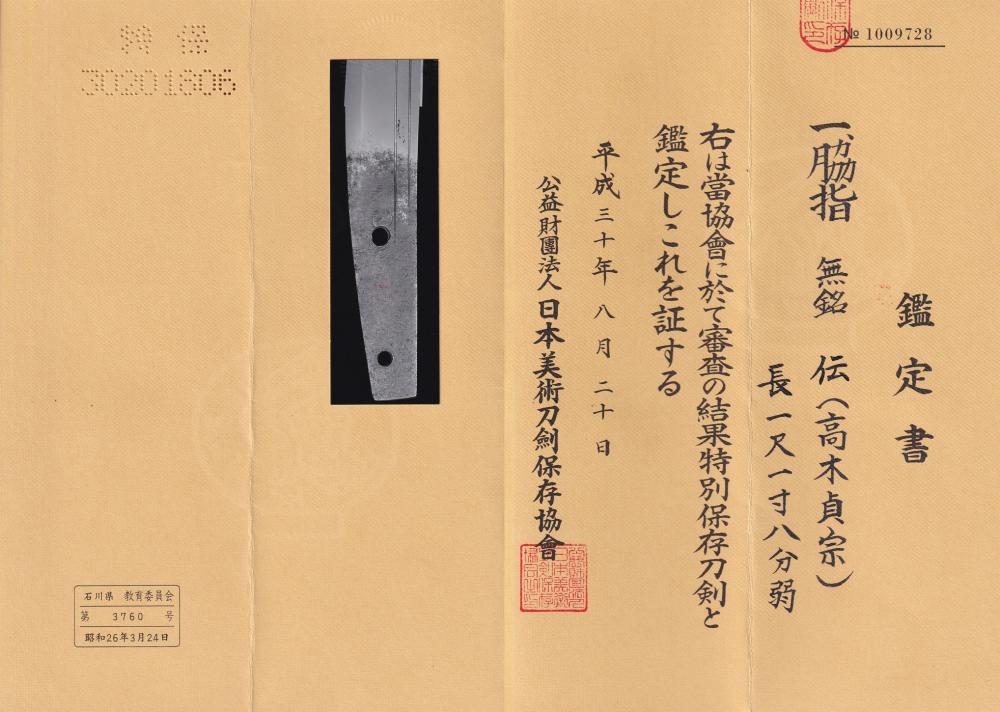 № 1009728
鑑定書
一、脇指 無銘 伝(高木貞宗)
長一尺一寸八分弱
右は當協會に於て審査の結果特別保存刀剣と
鑑定しこれを証する
平成三十年八月二十日
公益財團法人 日本美術刀劍保存協會
特保
30201806
石川県 教育委員会
第 3760 号
昭和26年3月24日